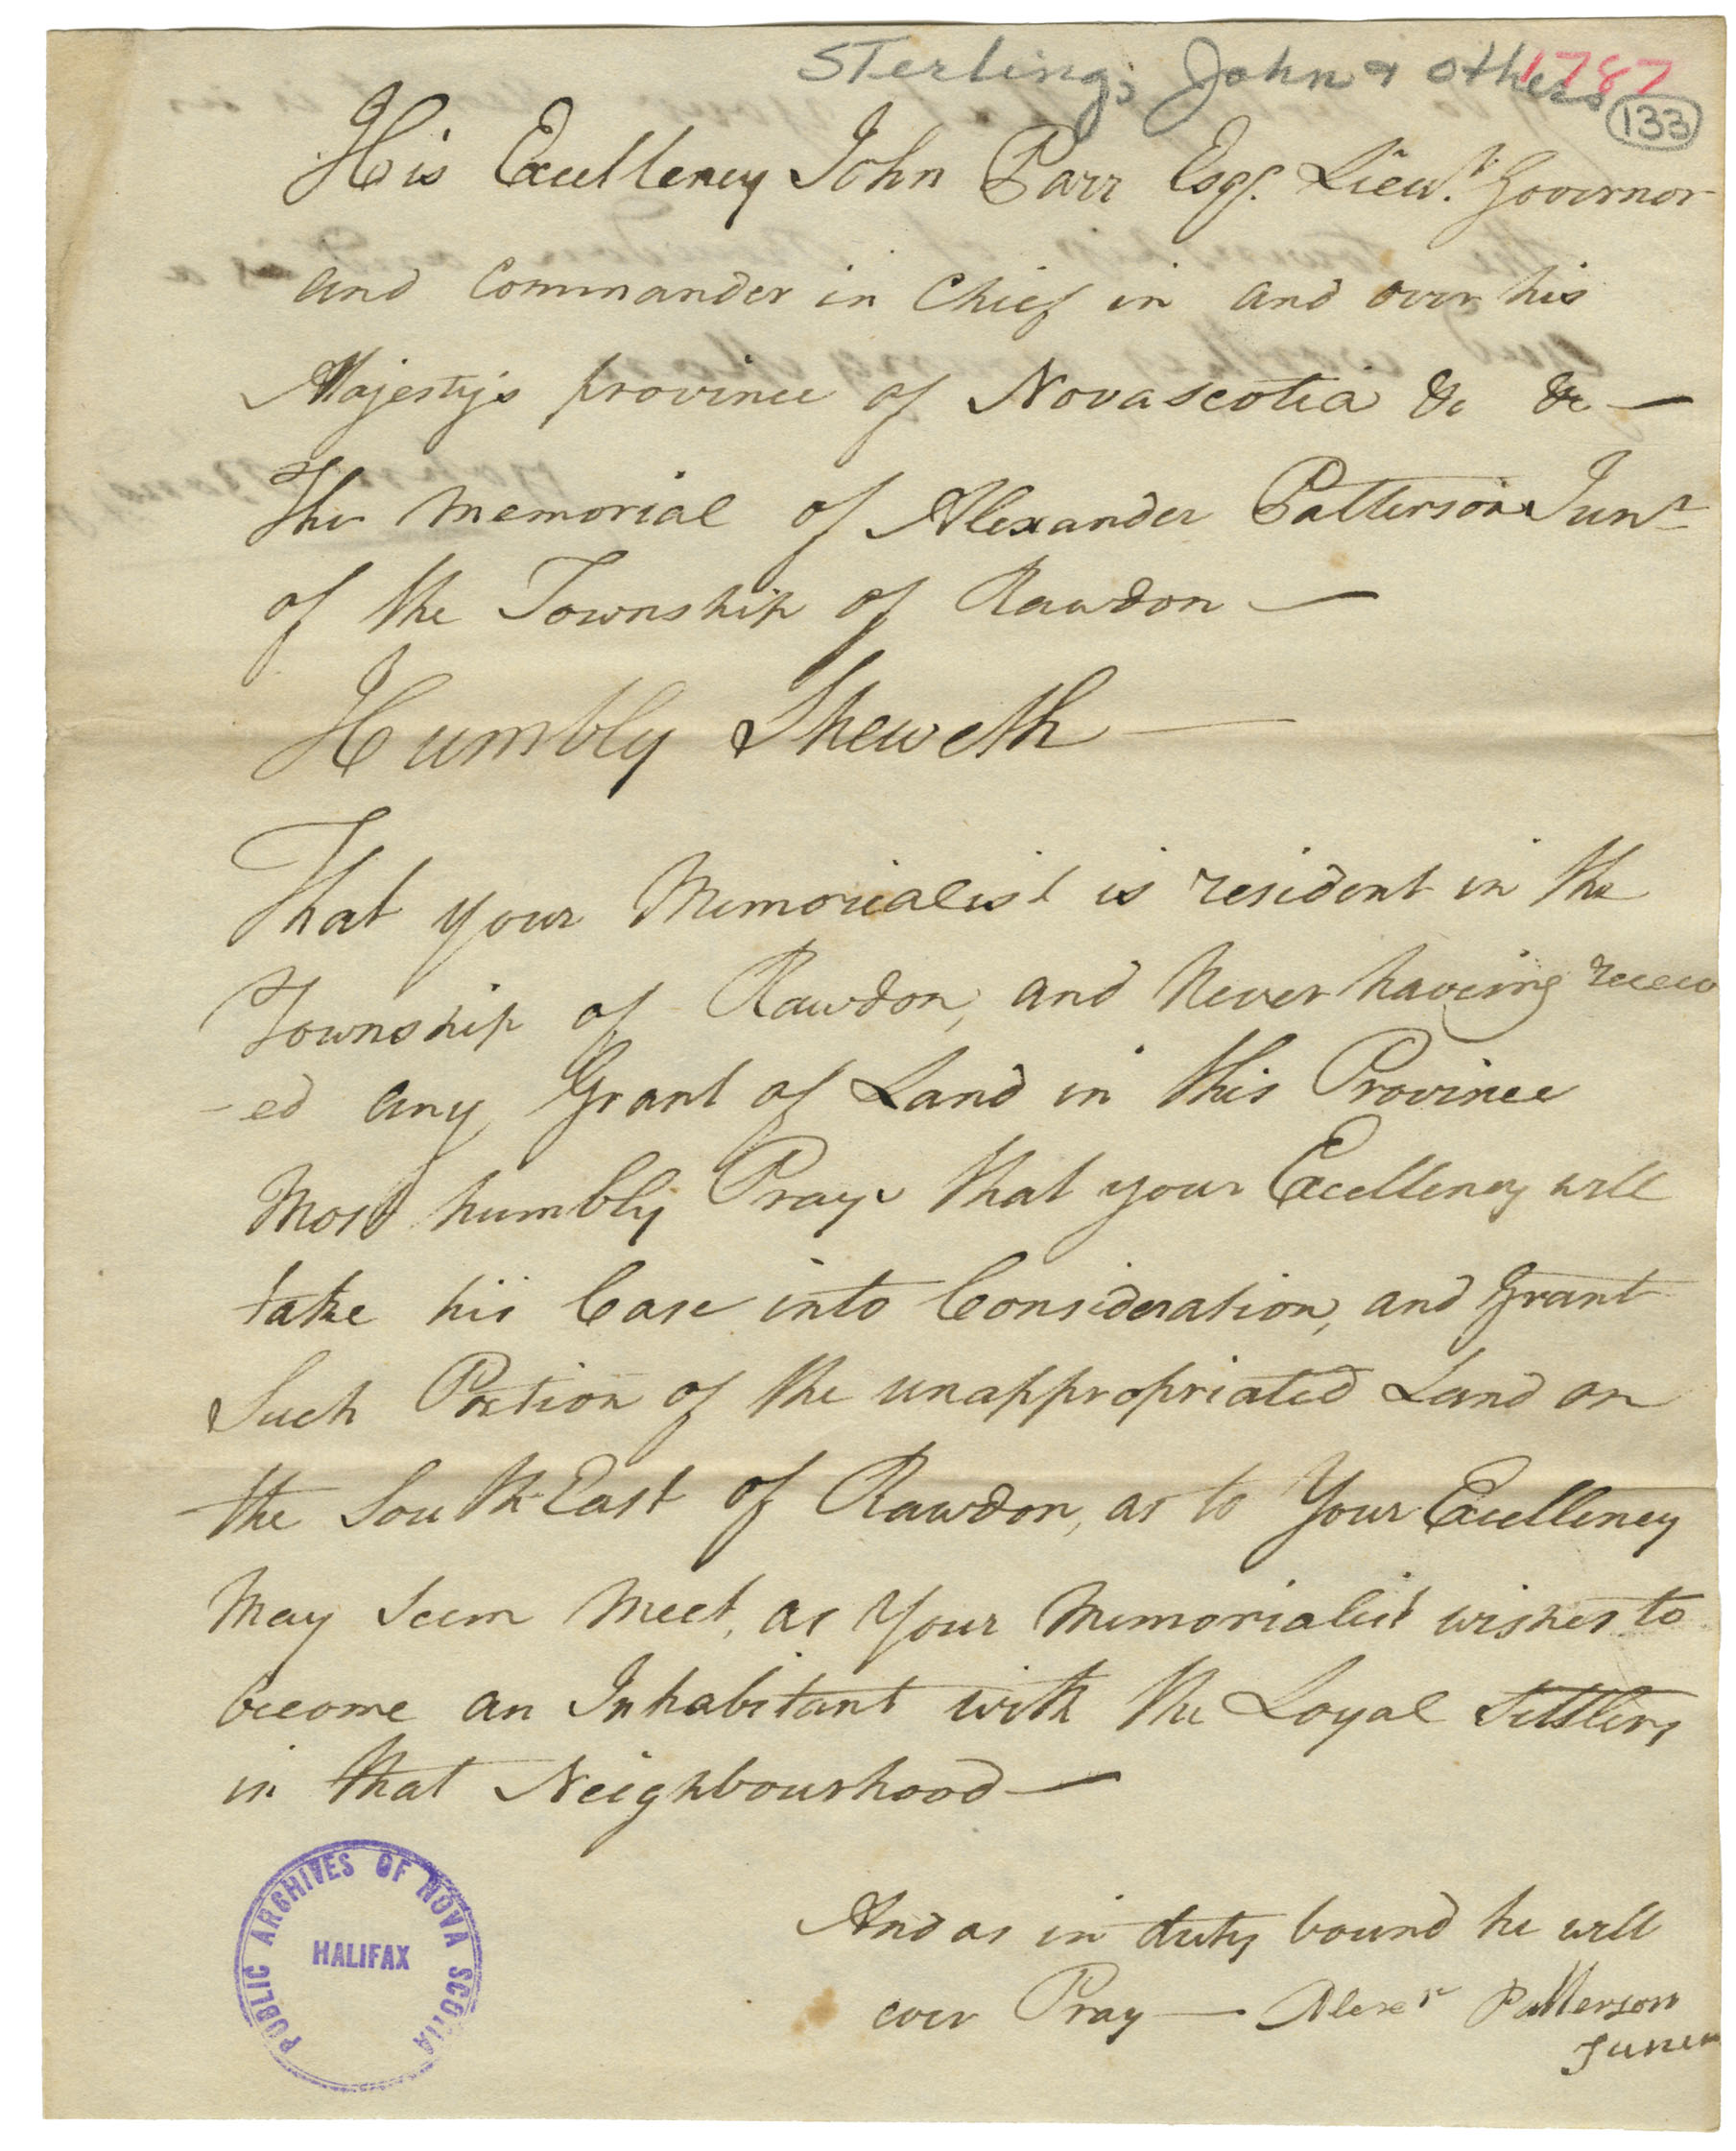 Sterling, John & others 1787
133
His Excellency John Parr Esqr. Lieut. Governor
and Commander in Chief in and over his
Majesty's province of Novascotia &c &c —
The Memorial of Alexander Patterson Junr
of the Township of Rawdon —
Humbly Sheweth —
That your Memorialist is resident in the
Township of Rawdon, and Never haveing receiv
-ed any Grant of Land in this Province
Most humbly Prays that your Excellency will
take his Case into Consideration, and Grant
Such Portion of the unappropriated Land on
the South East of Rawdon, as to Your Excellency
May Seem Meet, as Your Memorialist wishes to
become an Inhabitant with the Loyal Settlers
in that Neighbourhood —
And as in duty bound he will
ever Pray — Alexr Patterson
Juner
PUBLIC ARCHIVES OF NOVA SCOTIA
HALIFAX